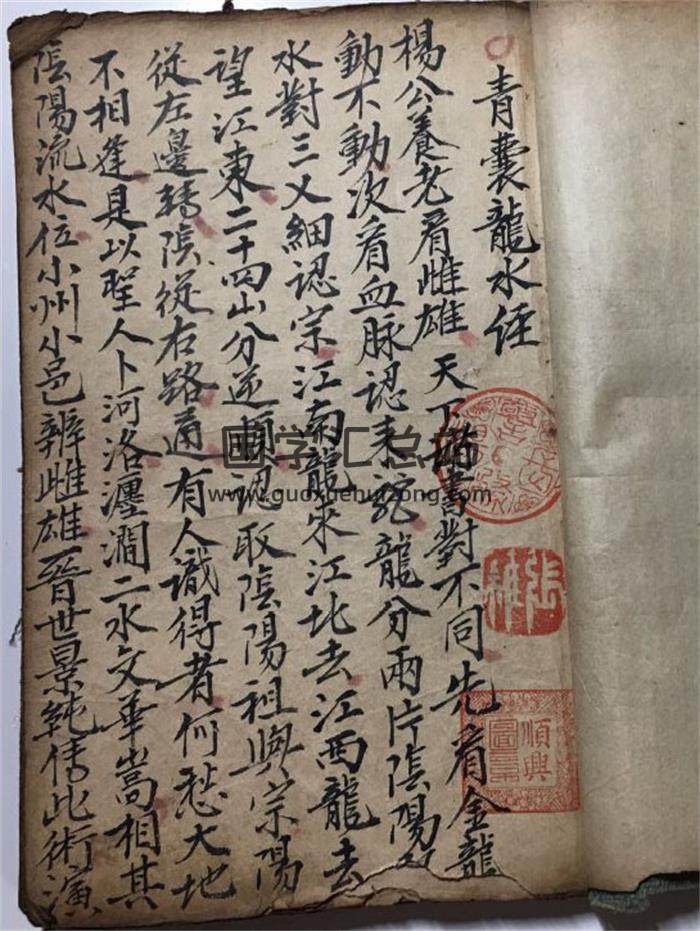 青囊龍水经
楊公養老看雌雄 天下諸書對不同先看金龍
動不動次看血脉認来龍龍分兩片陰陽
水對三义細認宗江南龍来江北去江西龍去
望江東二十四山分逆順認取陰陽祖與宗陽
從左邊轉陰從右路通有人識得者何愁大地
不相逢是以聖人卜河洛瀍澗二水文華嵩相其
陰陽流水位小州小邑辨雌雄晉世景純傳此術演
國学汇总
www.guoxuehuizong.com
張
順興